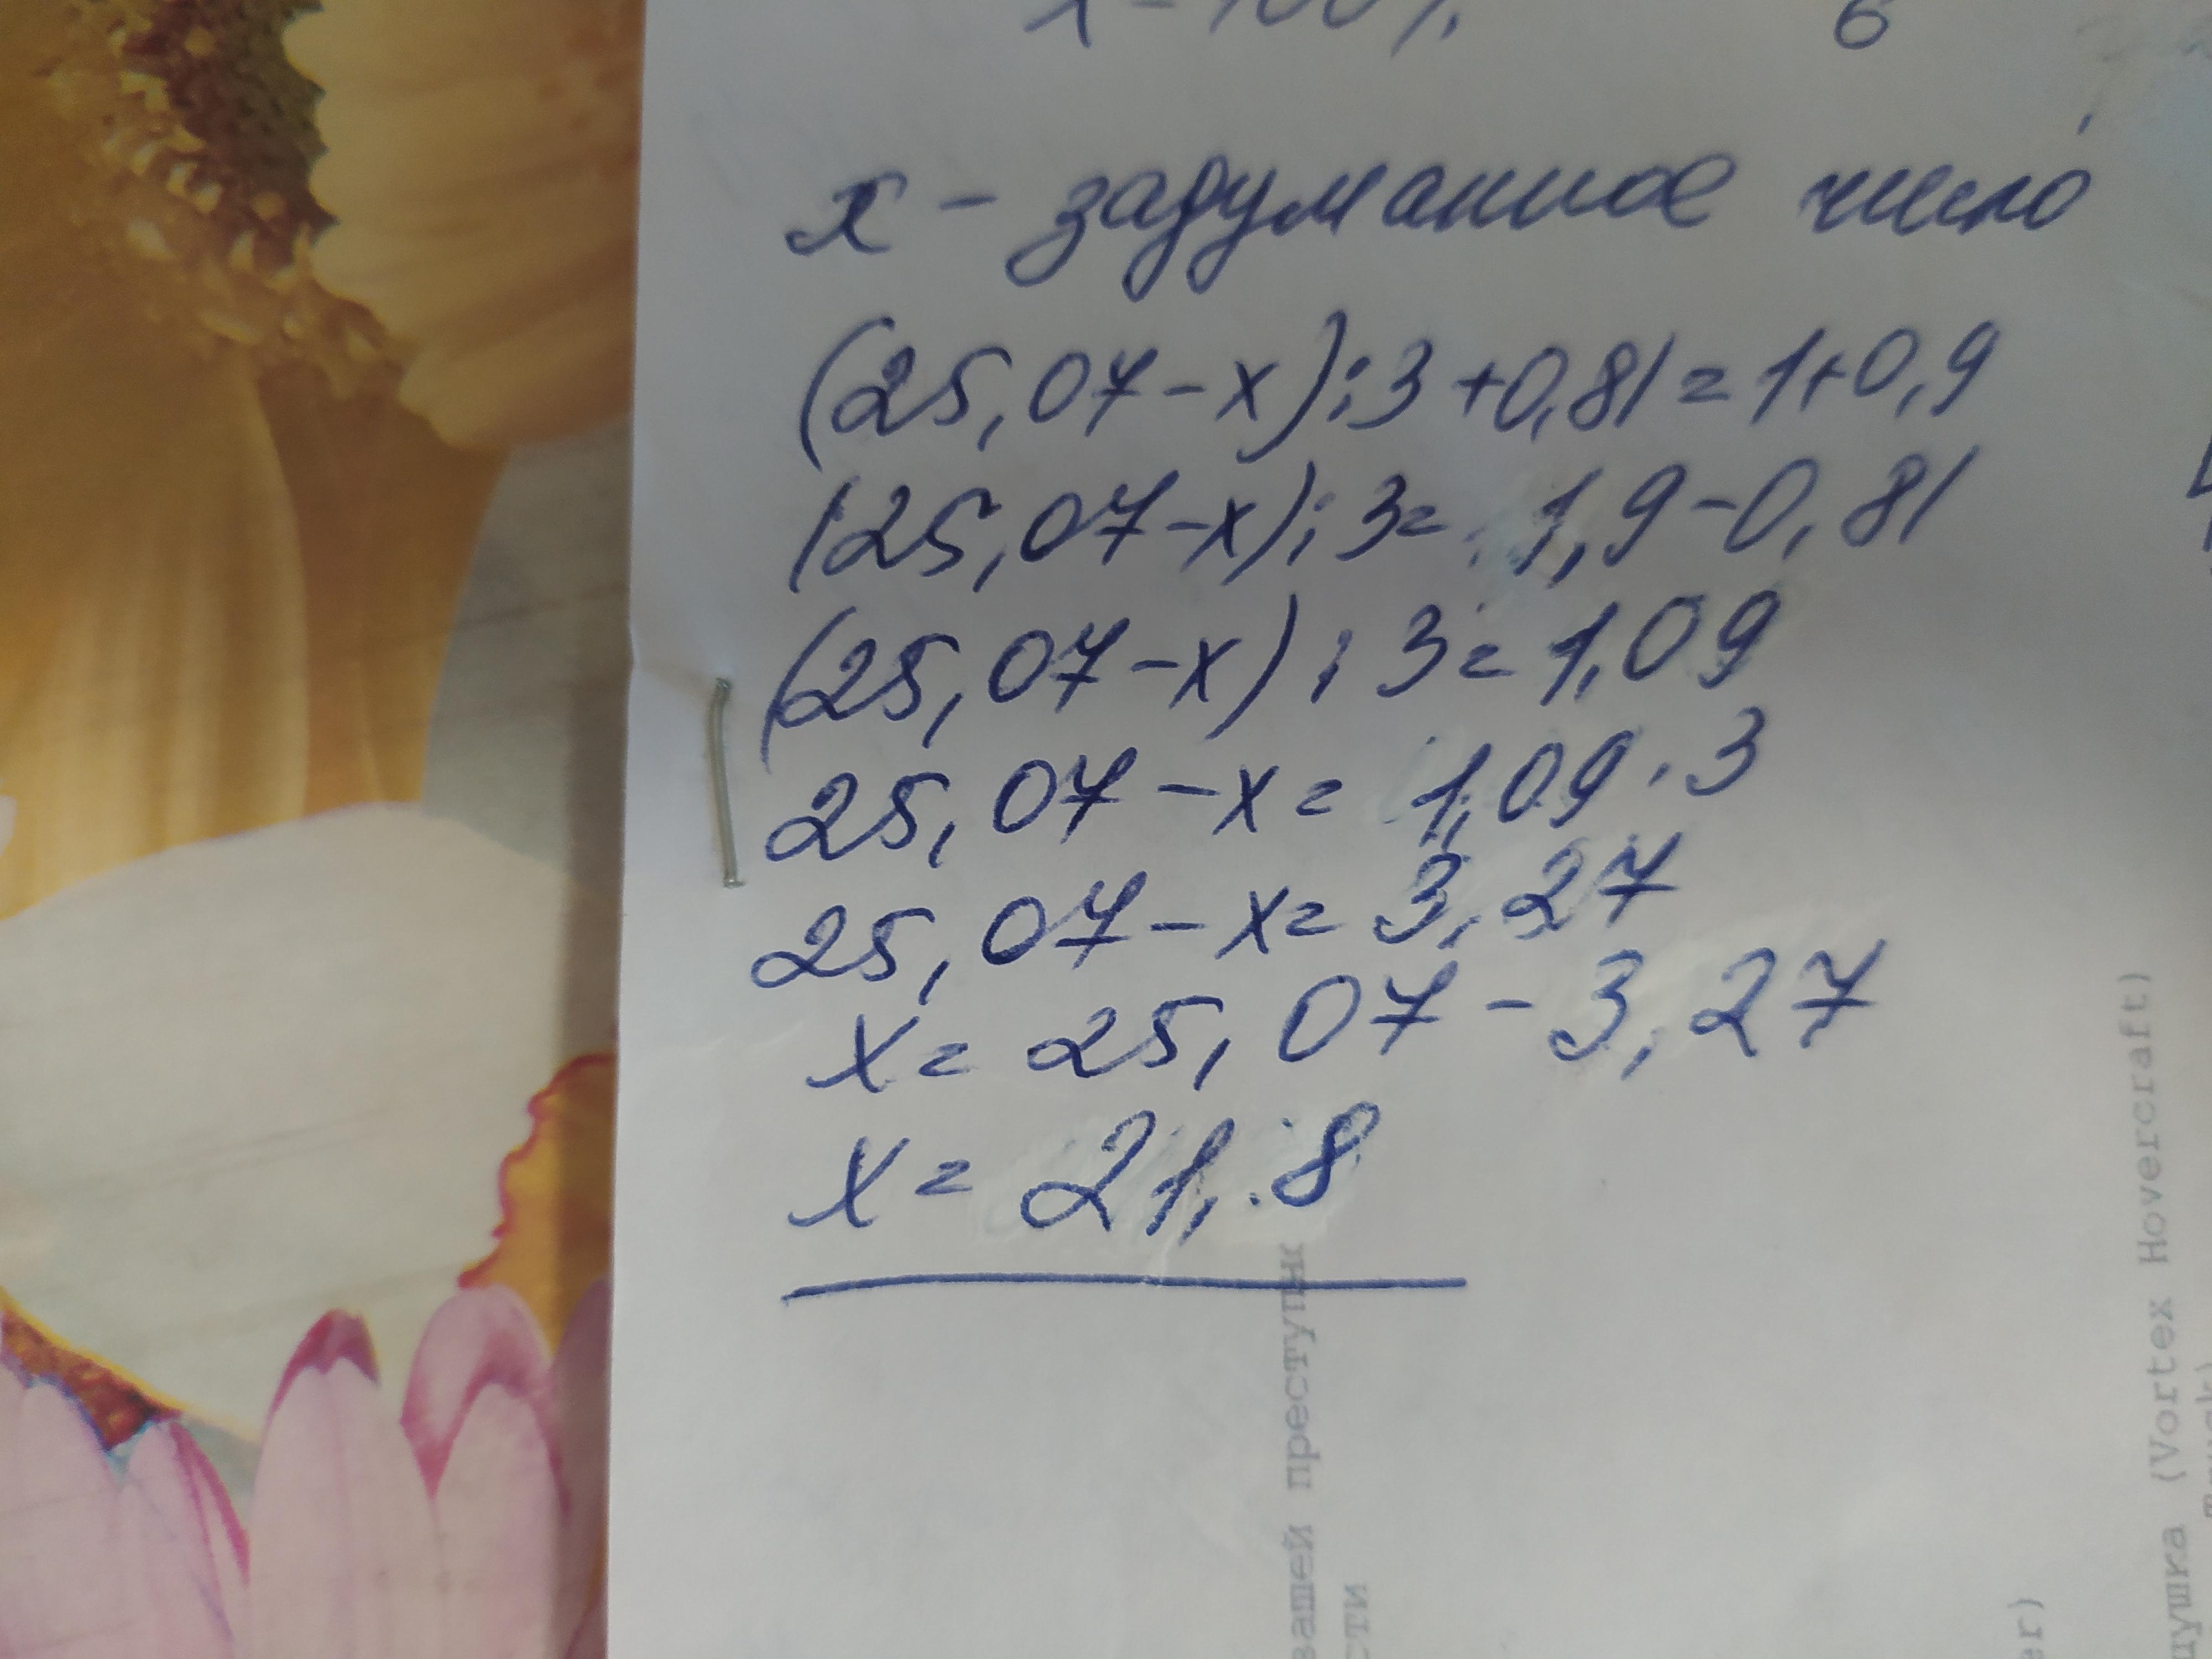 x - 100%
6
x - задуманное число
(25,07-x):3+0,81=1+0,9
(25,07-x):3=1,9-0,81
(25,07-x):3=1,09
25,07-x=1,09·3
25,07-x=3,27
x=25,07-3,27
x=21,8
вашей преступн
сти
(Vortex Hovercraft)
душка
er)